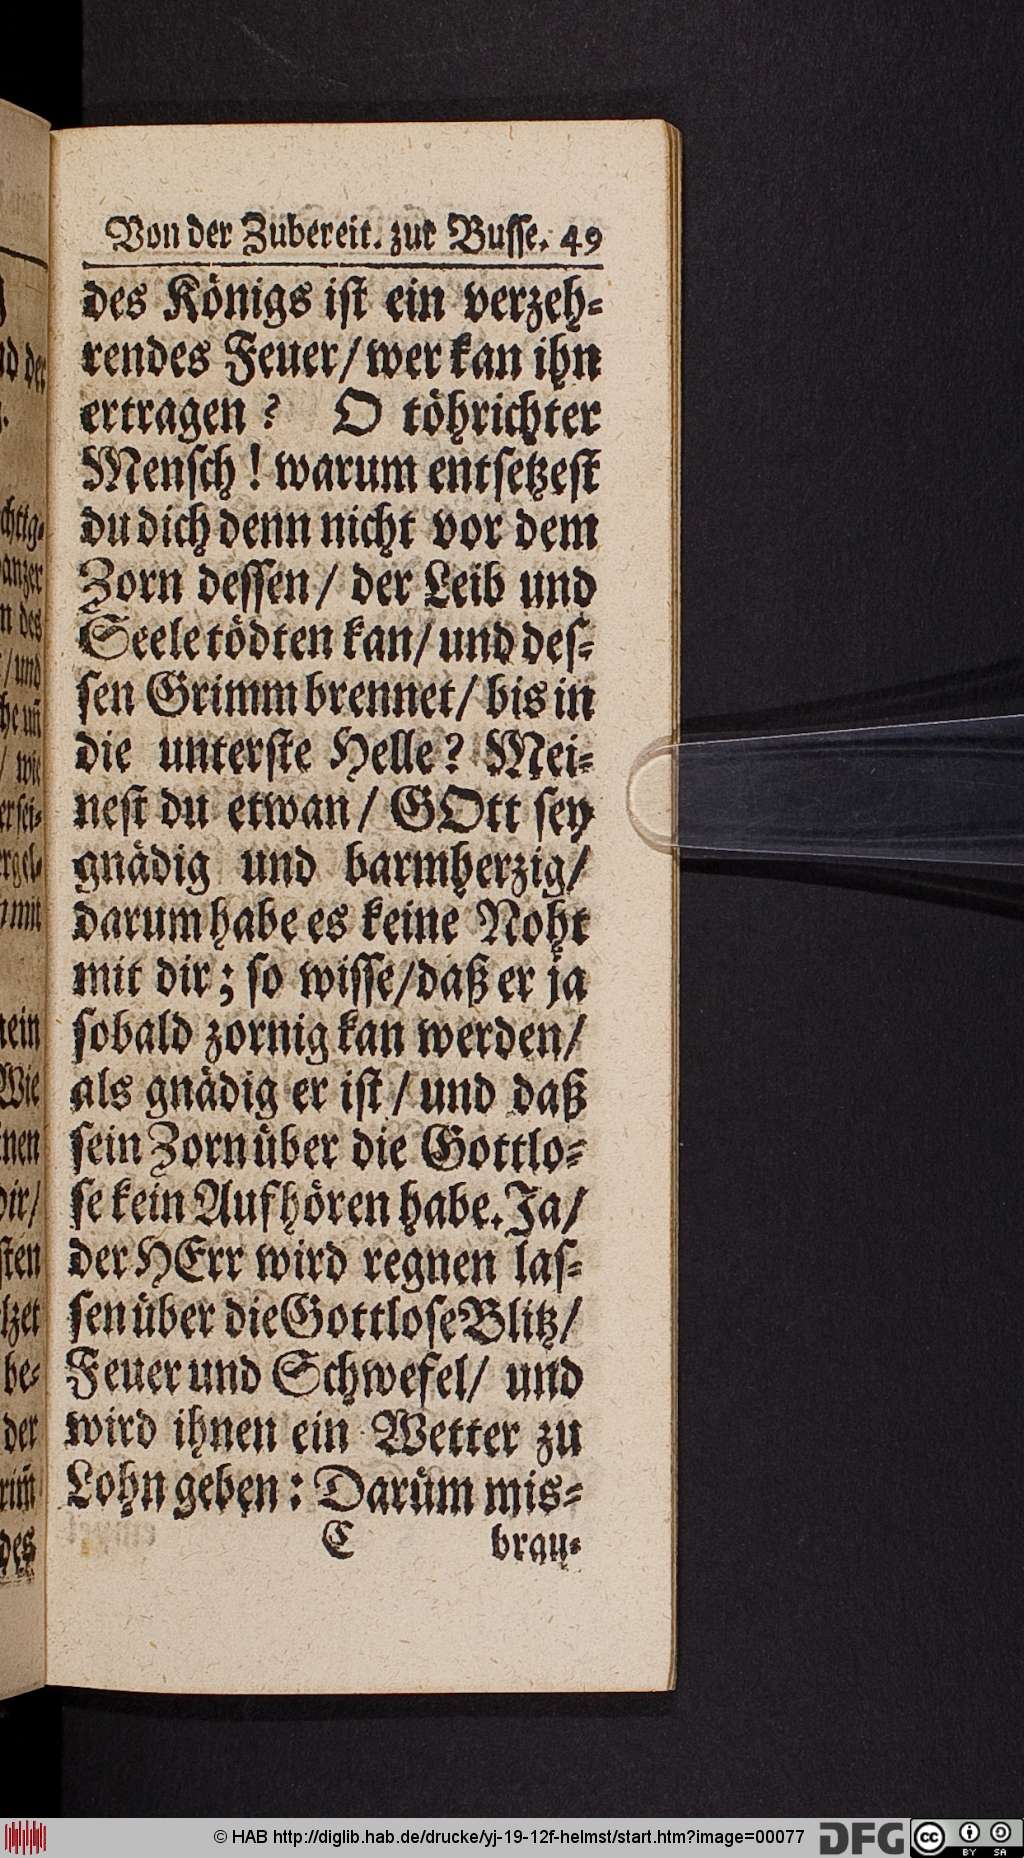 Von der Zubereit. zur Busse. 49
des Königs ist ein verzeh⸗
rendes Feuer/ wer kan ihn
ertragen? O töhrichter
Mensch! warum entsetzest
du dich denn nicht vor dem
Zorn dessen/ der Leib und
Seele tödten kan/ und des⸗
sen Grimm brennet/ bis in
die unterste Helle? Mei⸗
nest du etwan/ GOtt sey
gnädig und barmherzig/
darum habe es keine Noht
mit dir; so wisse/ daß er ja
sobald zornig kan werden/
als gnädig er ist/ und daß
sein Zorn über die Gottlo⸗
se kein Aufhören habe. Ja/
der HErr wird regnen las⸗
sen über die Gottlose Blitz/
Feuer und Schwefel/ und
wird ihnen ein Wetter zu
Lohn geben: Darum mis⸗
C brau⸗
© HAB http://diglib.hab.de/drucke/yj-19-12f-helmst/start.htm?image=00077
DFG
CC BY SA